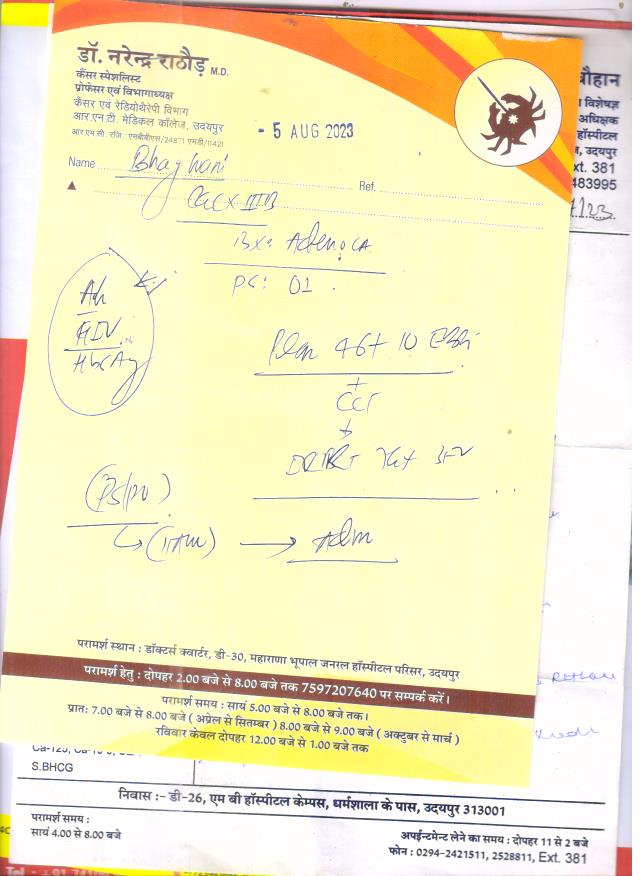 डॉ. नरेन्द्र राठौड़ M.D.
कैंसर स्पेशलिस्ट
प्रोफेसर एवं विभागाध्यक्ष
कैंसर एवं रेडियोथैरेपी विभाग
आर.एन.टी. मेडिकल कॉलेज, उदयपुर
आर.एम.सी. रजि. एमबीबीएस/24871 एमडी/11421
- 5 AUG 2023
Name Bhagwani Ref.
CaCx IIIB
Bx: Adeno CA
PS: 01
HIV
HbsAg
Plan 46+ 10 EBRt
+
CCT
+
Adm
परामर्श स्थान : डॉक्टर्स क्वार्टर, डी-30, महाराणा भूपाल जनरल हॉस्पीटल परिसर, उदयपुर
परामर्श हेतु : दोपहर 2.00 बजे से 8.00 बजे तक 7597207640 पर सम्पर्क करें।
परामर्श समय : सायं 5.00 बजे से 8.00 बजे तक।
प्रातः 7.00 बजे से 8.00 बजे ( अप्रेल से सितम्बर ) 8.00 बजे से 9.00 बजे ( अक्टुबर से मार्च )
रविवार केवल दोपहर 12.00 बजे से 1.00 बजे तक
ौहान
विशेषज्ञ
अधिक्षक
हॉस्पीटल
, उदयपुर
xt. 381
483995
S.BHCG
निवास :- डी-26, एम बी हॉस्पीटल केम्पस, धर्मशाला के पास, उदयपुर 313001
परामर्श समय :
सायं 4.00 से 8.00 बजे
अपईन्टमेन्ट लेने का समय : दोपहर 11 से 2 बजे
फोन : 0294-2421511, 2528811, Ext. 381